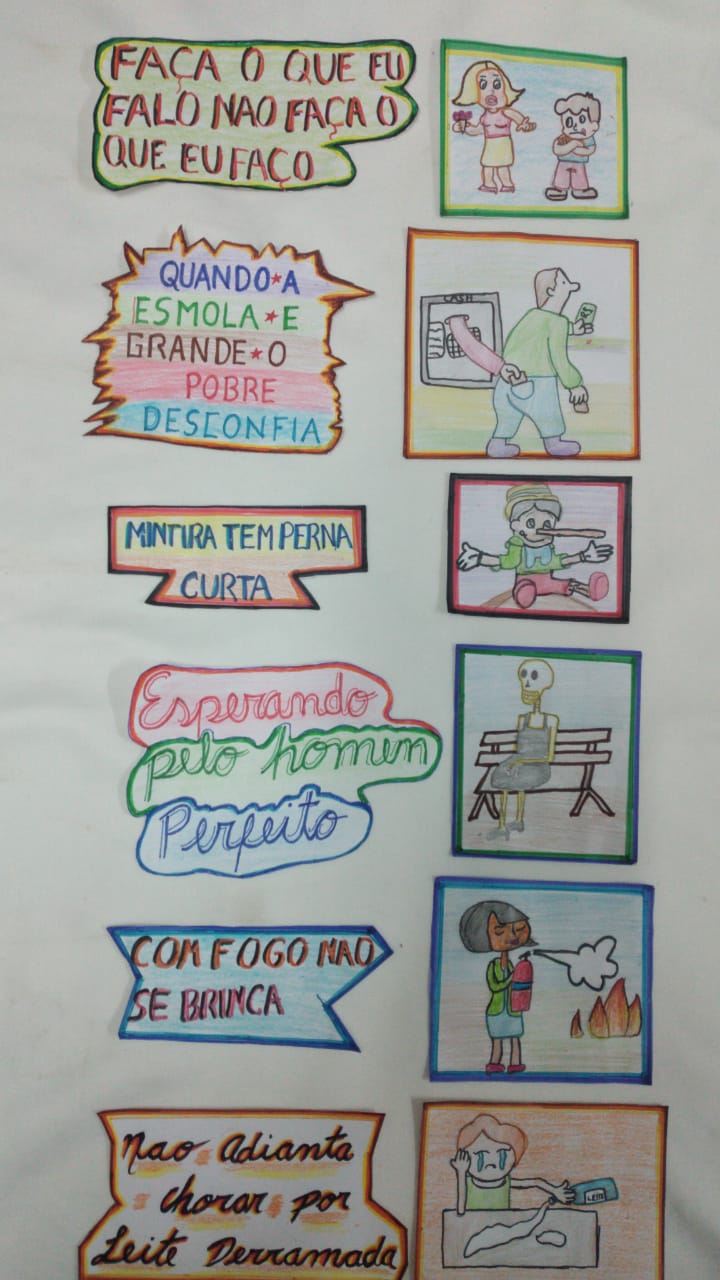 FAÇA O QUE EU
FALO NAO FAÇA O
QUE EU FAÇO
QUANDO A
ESMOLA E
GRANDE O
POBRE
DESCONFIA
CASH
MINTIRA TEM PERNA
CURTA
Esperando
pelo homem
Perfeito
COM FOGO NAO
SE BRINCA
Nao Adianta
chorar por
Leite Derramada
LEITE